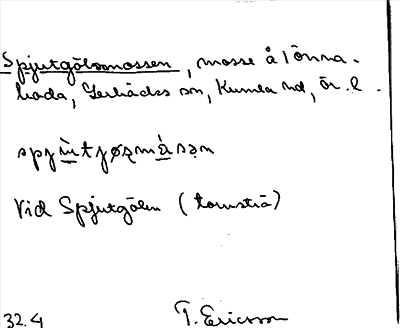 Spjutgölsmossen, mosse å Lönna-
boda, Lerbäcks sn, Kumla hd, Ör. l.
spjùtjøzmásən
Vid Spjutgölen (tomstiä)
32.4 T. Ericsson